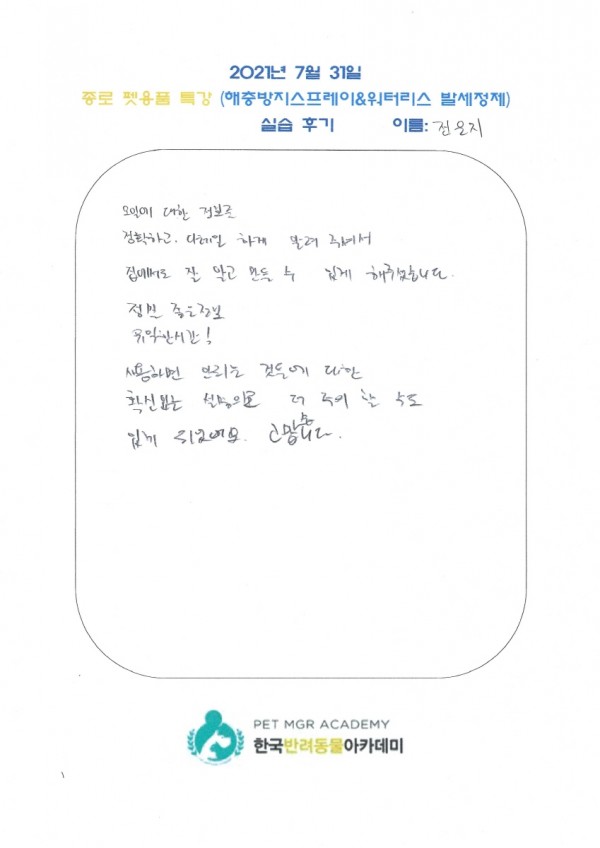 2021년 7월 31일
종로 펫용품 특강 (해충방지스프레이&워터리스 발세정제)
실습 후기 이름: 전은지
대한 정보를
정확하고, 디테일 하게 알려 주셔서
집에서도 잘 알고 만들 수 있게 해주셨습니다.
정말 좋은정보
유익한시간!
사용하면 안되는 것들에 대한
확신있는 설명으로 더 주의 할 수도
있게 되었네요. 고맙습니다.
PET MGR ACADEMY
한국반려동물아카데미